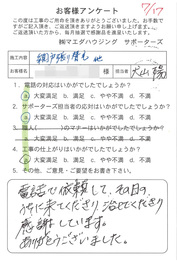 お客様アンケート
7/17
この度は工事のご依頼を頂きありがとうございました。お手数で
すがご記入頂き、ご返送頂きますようお願い申し上げます。
ご返送頂いた方から、毎月抽選で感謝品を進呈いたします。
㈱マエダハウジング サポーターズ
施工内容 網戸張り替え 他
お客様名 様 担当者 犬山 陽
1. 電話の対応はいかがでしたでしょうか?
a 大変満足 b. 満足 c. やや不満 d. 不満
2. サポーターズ担当者の応対はいかがでしたでしょうか?
a 大変満足 b. 満足 c. やや不満 d. 不満
3. 職人( )のマナーはいかがでしたでしょうか?
a. 大変満足 b. 満足 c. やや不満 d. 不満
4. 工事の仕上がりはいかがでしたでしょうか?
a 大変満足 b. 満足 c. やや不満 d. 不満
5. その他、ご意見・ご感想をお書き下さい。
電話で依頼して、その日の
うちに来てくださり 治せてくださり
感謝しています。
ありがとうございました。